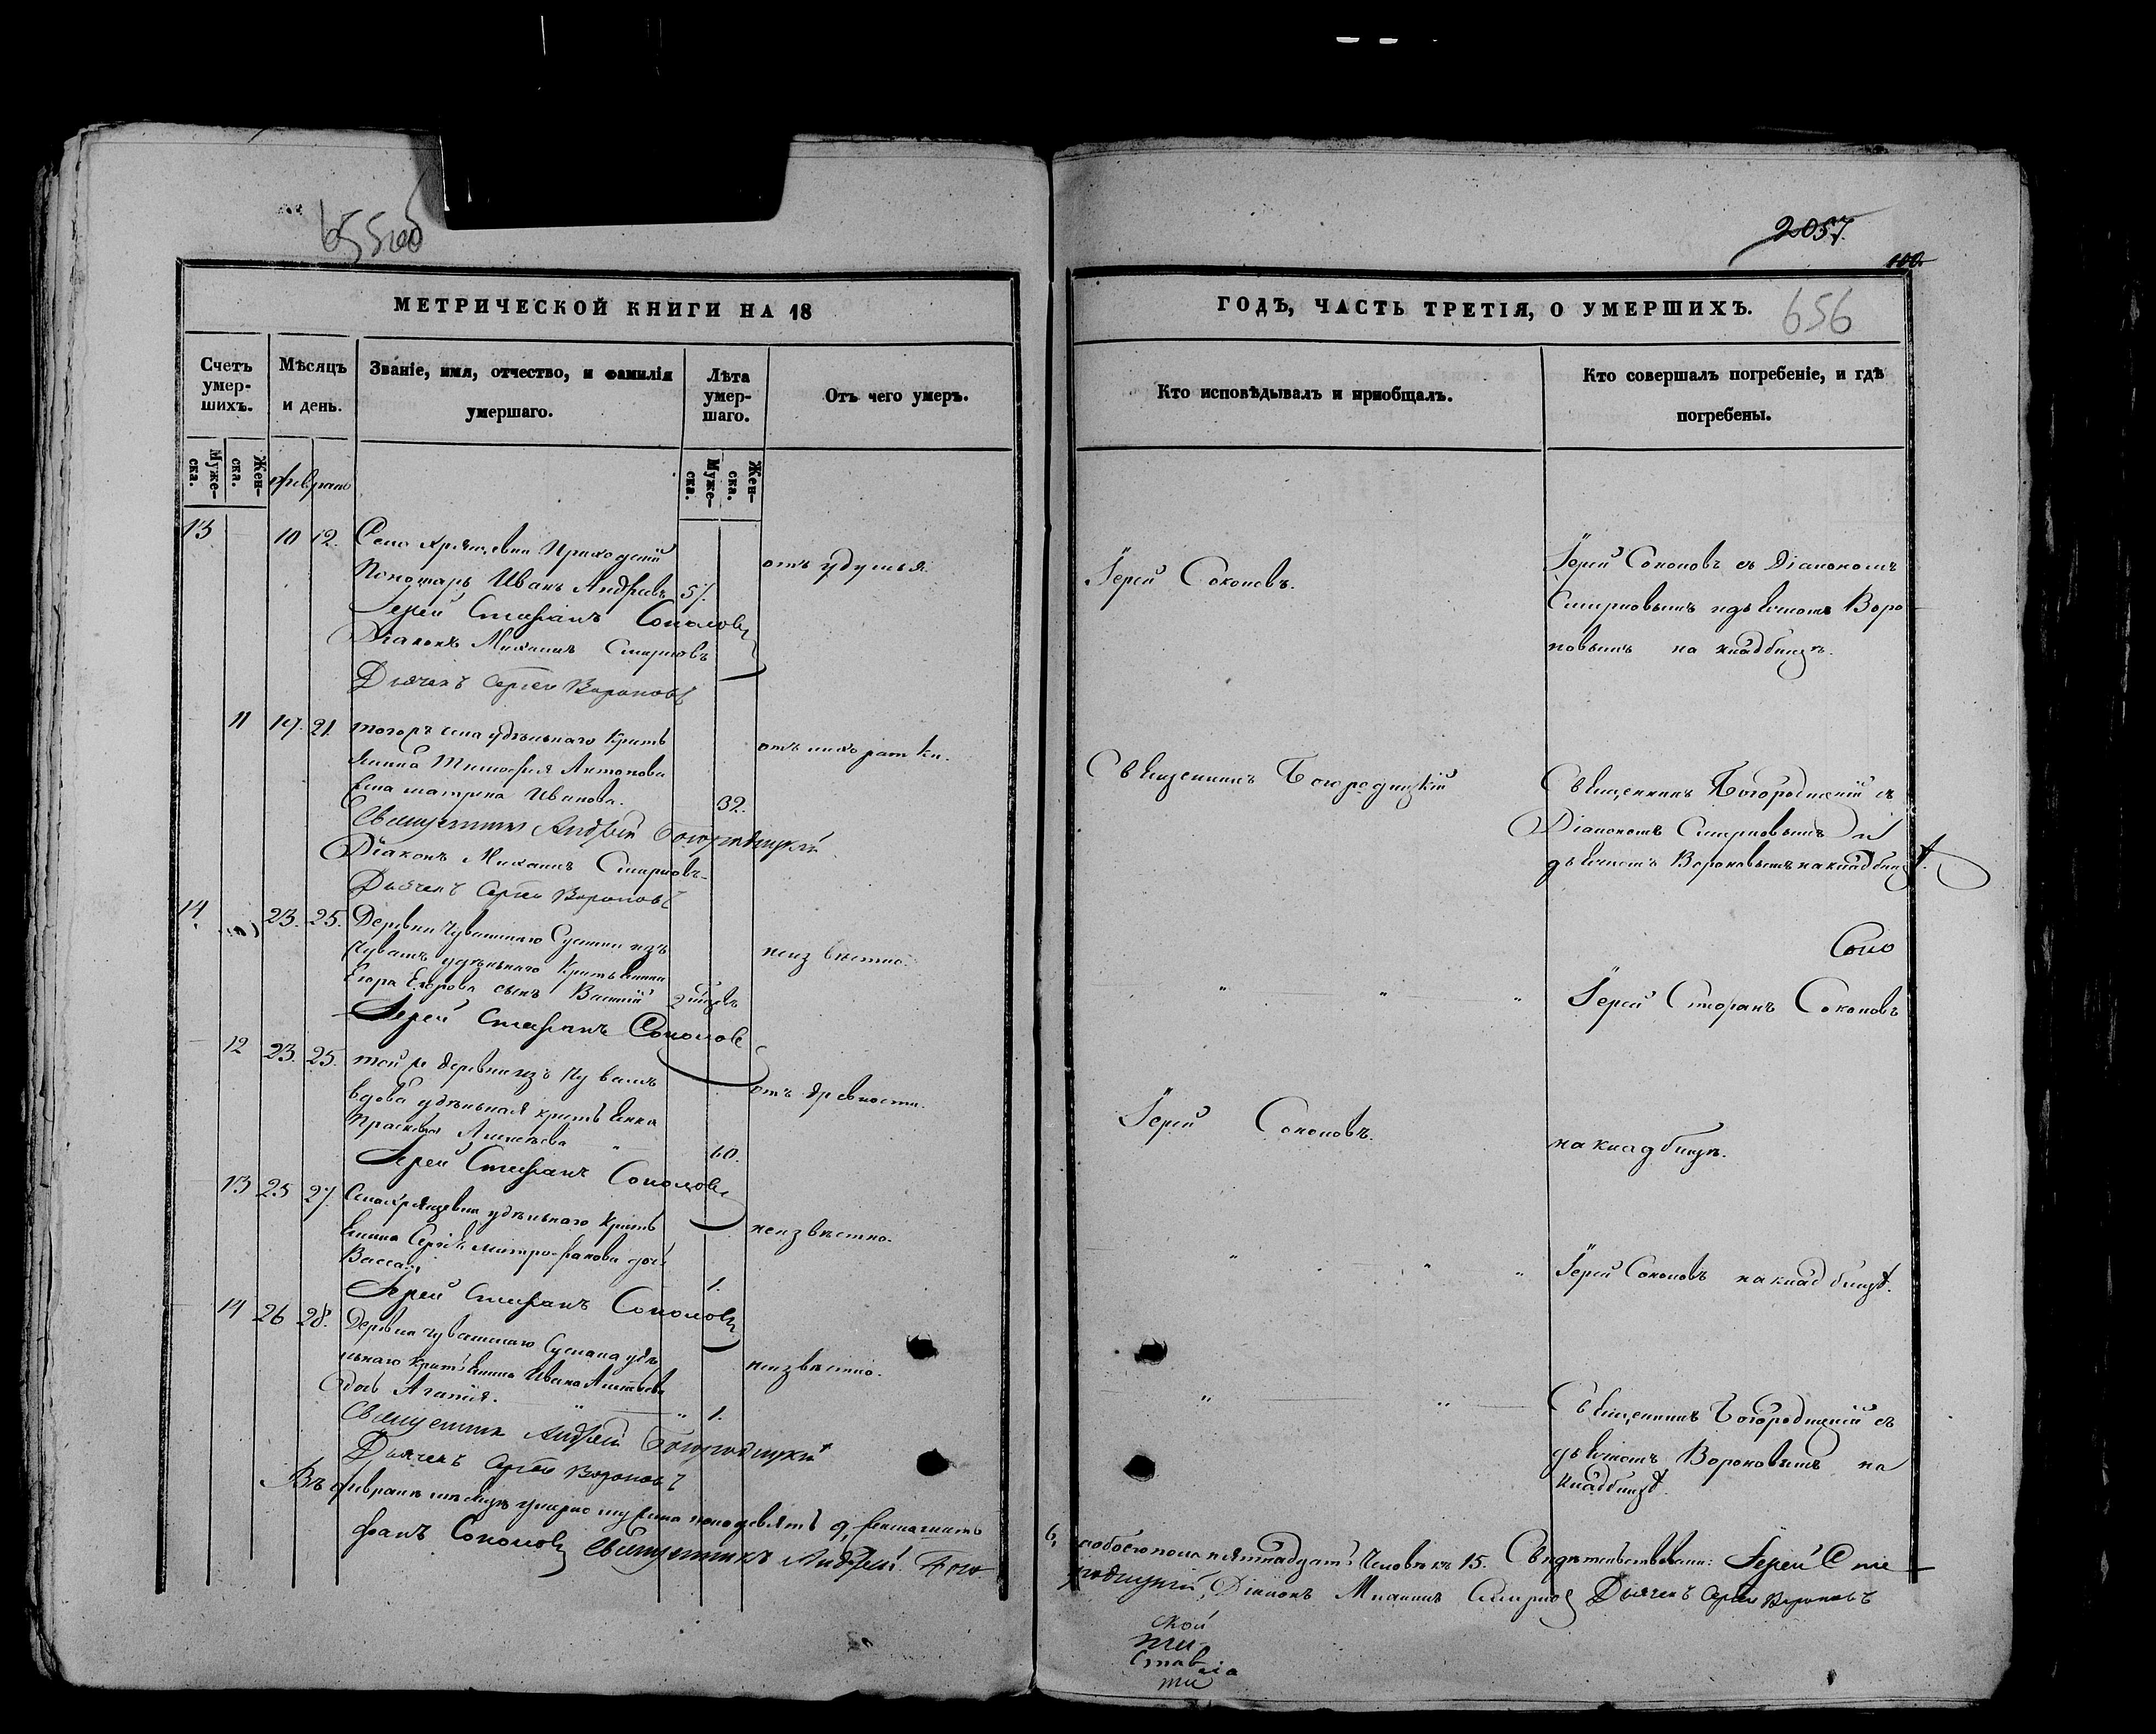 655об
МЕТРИЧЕСКОЙ КНИГИ НА 18
Счетъ умер-шихъ.
Мѣсяцъ и день.
Званіе, имя, отчество, и фамилія умершаго.
Лѣта умер-шаго.
Отъ чего умеръ.
Муже-ска.
Жен-ска.
февраль
Муже-ска.
Жен-ска.
13 10 12. Село Хрящевки Приходскій
Пономарь Иванъ Андреевъ 57. отъ удушья.
Іерей Стефанъ Соколовъ
Діаконъ Михаилъ Смирновъ
Дьячекъ Сергей Вороновъ
11 19. 21. тогожъ села удѣльнаго Кресть
янина Тимофея Антонова отъ лихоратки.
жена матрена Иванова. 32.
Священникъ Андрей Богородицкій
Діаконъ Михаилъ Смирновъ
Дьячекъ Сергей Вороновъ
14. 23. 25. Деревни Чувашскаго Сускана изъ
Чувашъ удѣльнаго Крестьянина неизвѣстно.
Егора Егорова сынъ Василій
Іерей Стефанъ Соколовъ
12 23. 25. той же деревни изъ Чувашъ
вдова удѣльная крестьянка отъ древности.
Прасковья Алексѣева 60.
Іерей Стефанъ Соколовъ
13 25 27. Села Хрящевки удѣльнаго Кресть
янина Сергѣя митрофанова дочь неизвѣстно.
Васса 1.
Іерей Стефанъ Соколовъ
14 26 28. Деревни чувашскаго Сускана удѣ
льнаго крестьянина Ивана неизвѣстно.
дочь Агапія. 1.
Священникъ Андрей Богородицкій
Дьячекъ Сергей Вороновъ
Въ февралѣ мѣсяцѣ умерло мужеска пола девять 9, женска шесть
фанъ Соколовъ Священникъ Андрей Бого
2057.
100.
656
ГОДЪ, ЧАСТЬ ТРЕТІЯ, О УМЕРШИХЪ.
Кто исповѣдывалъ и пріобщалъ.
Кто совершалъ погребеніе, и гдѣ погребены.
Іерей Соколовъ.
Іерей Соколовъ съ Діакономъ
Смирновымъ и дьячкомъ Воро
новымъ на кладбищѣ.
Священникъ Богородицкій
Священникъ Богородицкій съ
Діакономъ Смирновымъ и
дьячкомъ Вороновымъ на кладбищѣ.
Соко
Іерей Стефанъ Соколовъ
Іерей Соколовъ.
на кладбищѣ.
Іерей Соколовъ на кладбищѣ.
Священникъ Богородицкій съ
дьячкомъ Вороновымъ на
кладбищѣ.
6, обоего пола пятнадцать Человѣкъ 15. Свидѣтельствовали: Іерей Сте
родицкій, Діаконъ Михаилъ Смирновъ Дьячекъ Сергей Вороновъ